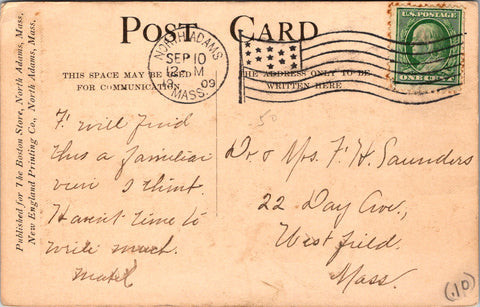 POST CARD
THIS SPACE MAY BE USED
FOR COMMUNICATION
THE ADDRESS ONLY TO BE
WRITTEN HERE
NORTH ADAMS
SEP 10
12 M
09
MASS.
U.S. POSTAGE
ONE CENT
Published for The Boston Store, North Adams, Mass.
New England Printing Co., North Adams, Mass.
50
will find
this a familiar
view I think.
Haven't time to
write much.
Mabel
Dr & Mrs. F. H. Saunders
22 Day Ave,
Westfield.
Mass.
(.10)